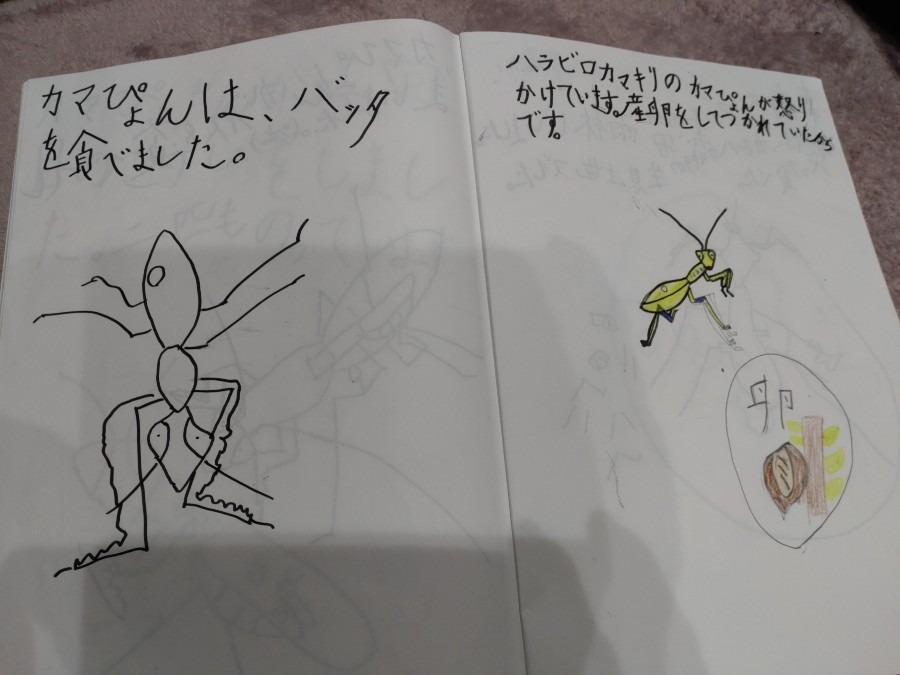 カマぴょんは、バッタ
を食べました。
ハラビロカマキリのカマぴょんが怒り
かけています。産卵をしてつかれていたから
です。
卵